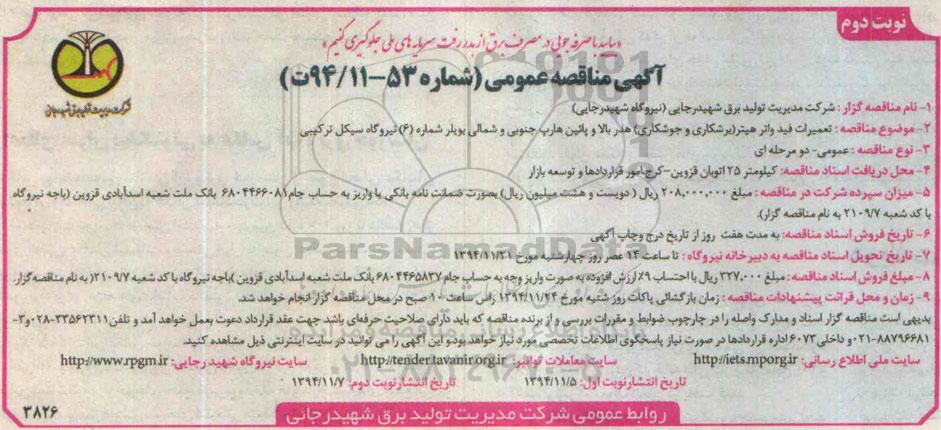 نوبت دوم
«بیایید با صرفه جویی در مصرف برق از به هدر رفت سرمایه های ملی جلوگیری کنیم»
آگهی مناقصه عمومی (شماره ۵۳-۹۴/۱۱ت)
شرکت مدیریت تولید برق شهید رجایی
۱- نام مناقصه گزار : شرکت مدیریت تولید برق شهیدرجایی (نیروگاه شهیدرجایی)
۲-موضوع مناقصه : تعمیرات فید واتر هیتر(برشکاری و جوشکاری) هدر بالا و پائین هارپ جنوبی و شمالی بویلر شماره (۶) نیروگاه سیکل ترکیبی
۳- نوع مناقصه : عمومی- دو مرحله ای
۴- محل دریافت اسناد مناقصه: کیلومتر ۲۵ اتوبان قزوین-کرج-امور قراردادها و توسعه بازار
۵- میزان سپرده شرکت در مناقصه : مبلغ ۲۰۸,۰۰۰,۰۰۰ ریال ( دویست و هشت میلیون ریال) بصورت ضمانت نامه بانکی یا واریز به حساب جام۶۸۰۴۴۶۶۰۸۱ بانک ملت شعبه اسدآبادی قزوین (باجه نیروگاه
با کد شعبه ۲۱۰۹/۷ به نام مناقصه گزار).
۶- تاریخ فروش اسناد مناقصه: به مدت هفت روز از تاریخ درج وچاپ آگهی
۷- تاریخ تحویل اسناد مناقصه به دبیرخانه نیروگاه : تا ساعت ۱۴ عصر روز چهارشنبه مورخ ۱۳۹۴/۱۱/۲۱
۸- مبلغ فروش اسناد مناقصه: مبلغ ۳۲۷,۰۰۰ ریال با احتساب ۹٪ ارزش افزوده به صورت واریز وجه به حساب جام ۶۸۰۴۴۶۵۸۳۷ بانک ملت شعبه اسدآبادی قزوین )باجه نیروگاه با کد شعبه ۲۱۰۹/۷( به نام مناقصه گزار.
۹- زمان و محل قرائت پیشنهادات مناقصه : زمان بازگشائی پاکات روز شنبه مورخ ۱۳۹۴/۱۱/۲۴ راس ساعت ۱۰ صبح در محل مناقصه گزار انجام خواهد شد.
بدیهی است مناقصه گزار اسناد و مدارک واصله را در چارچوب ضوابط و مقررات بررسی و از برنده مناقصه که باید دارای صلاحیت حرفه‌ای باشد جهت عقد قرارداد دعوت بعمل خواهد آمد و تلفن ۳۳۵۶۲۳۱۱-۰۲۸و۳-
۰۲۱-۸۸۷۹۶۶۸۱ و داخلی ۶۰۷۳ اداره قراردادها در صورت نیاز پاسخگوی اطلاعات تخصصی مورد نیاز خواهد بود و این آگهی را می توانید در سایت اینترنتی ذیل مشاهده کنید.
سایت ملی اطلاع رسانی: http://iets.mporg.ir سایت معاملات توانیر: http://tender.tavanir.org.ir سایت نیروگاه شهید رجایی: http://www.rpgm.ir
تاریخ انتشار نوبت اول: ۱۳۹۴/۱۱/۵ تاریخ انتشار نوبت دوم: ۱۳۹۴/۱۱/۷
روابط عمومی شرکت مدیریت تولید برق شهیدرجائی
۳۸۲۶
ParsNamadData